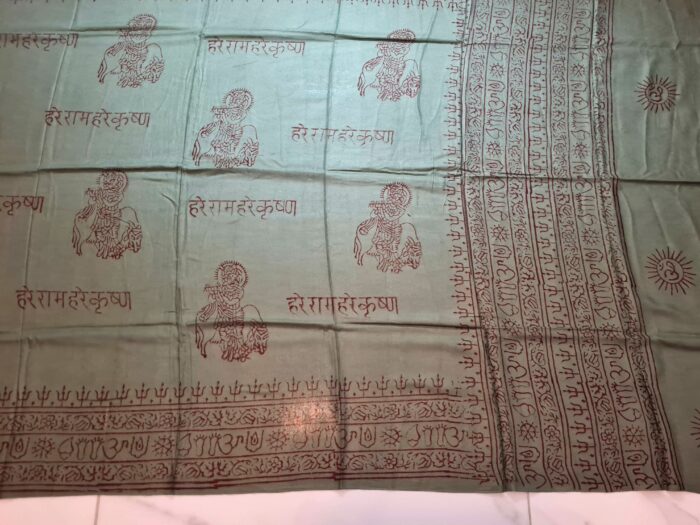 हरे राम हरे कृष्ण
हरे राम हरे कृष्ण
हरे राम हरे कृष्ण
हरे राम हरे कृष्ण
कृष्ण
हरे राम हरे कृष्ण
हरे राम हरे कृष्ण
हरे राम हरे कृष्ण